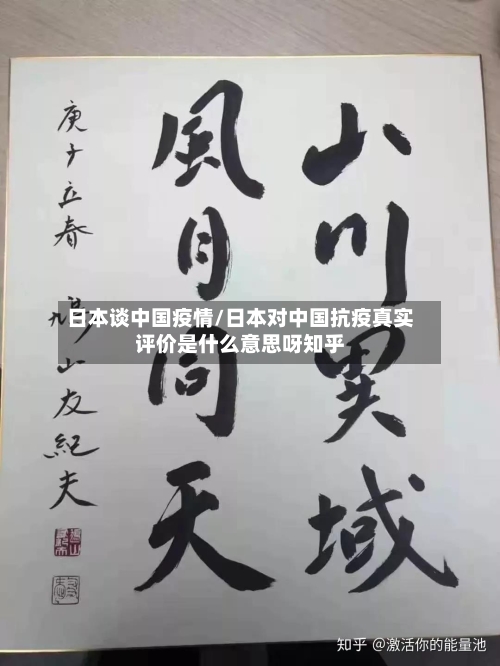 山川異域
風月同天
庚子立春
山友紀夫
日本谈中国疫情/日本对中国抗疫真实
评价是什么意思呀知乎
知乎 @激活你的能量池